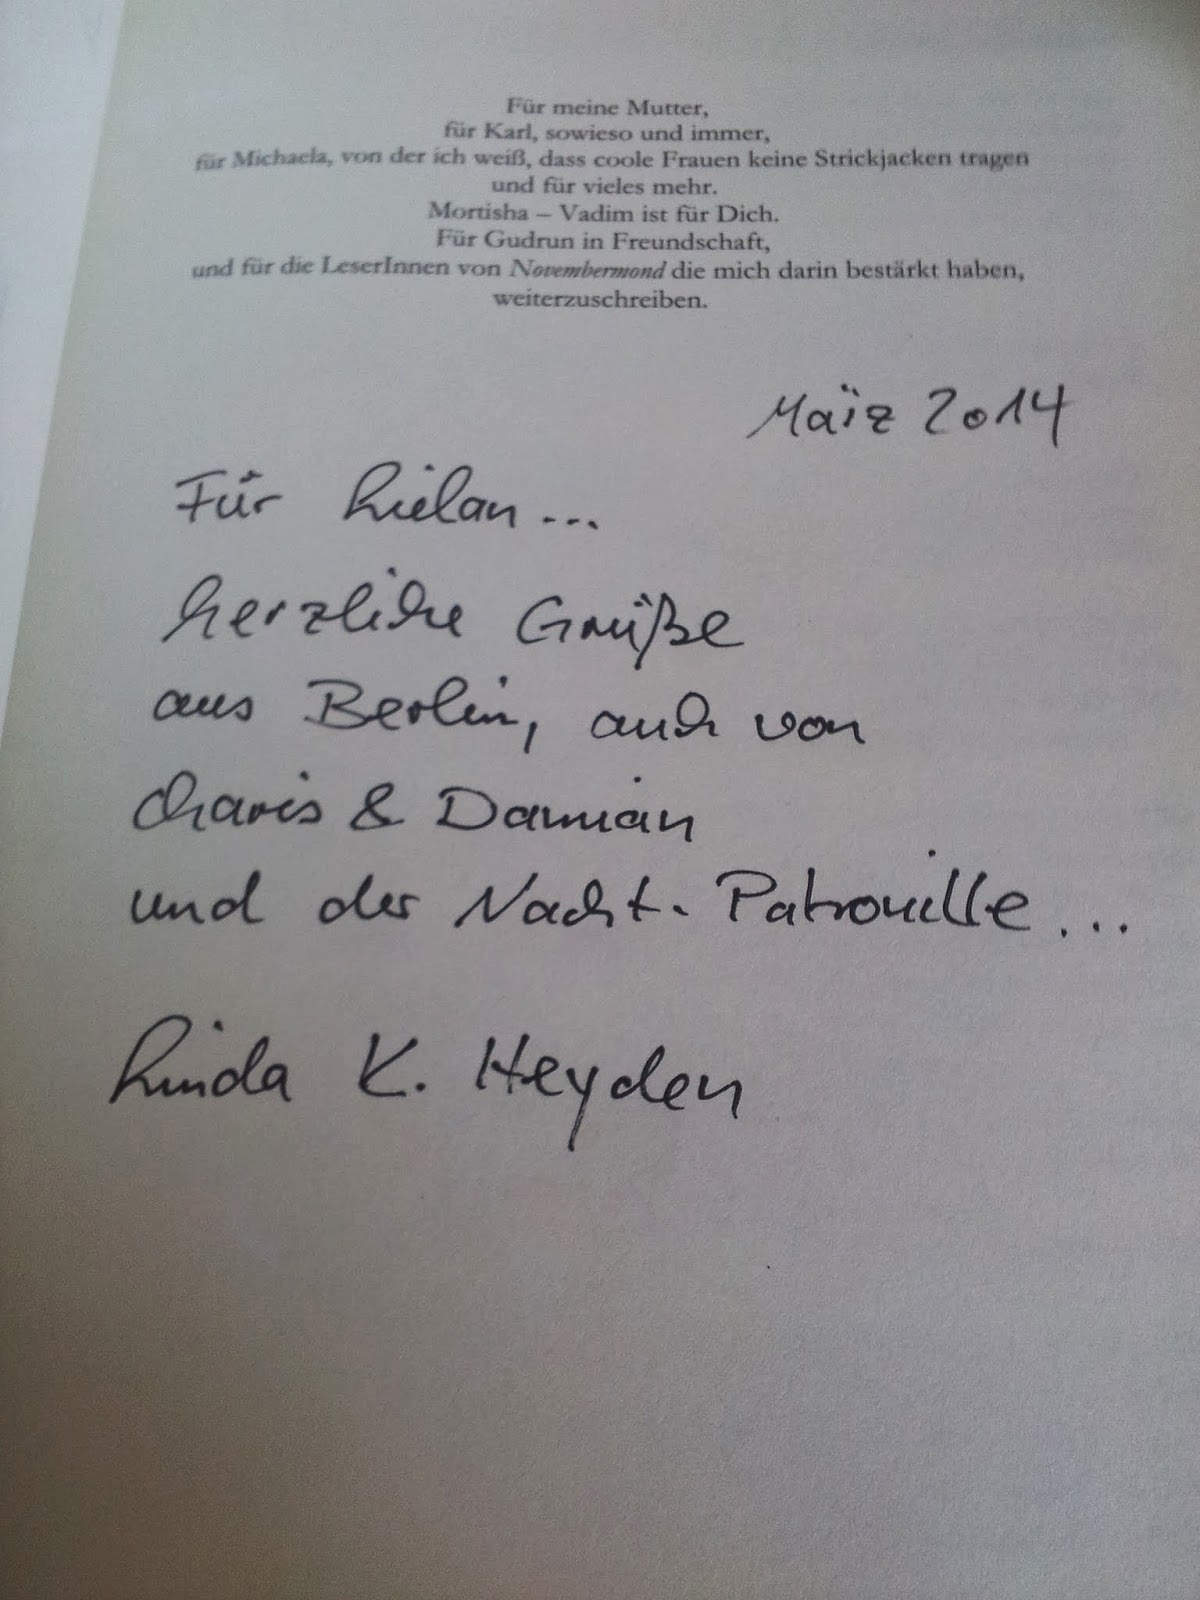 Für meine Mutter,
für Karl, sowieso und immer,
für Michaela, von der ich weiß, dass coole Frauen keine Strickjacken tragen
und für vieles mehr.
Mortisha – Vadim ist für Dich.
Für Gudrun in Freundschaft,
und für die LeserInnen von Novembermond die mich darin bestärkt haben,
weiterzuschreiben.
März 2014
Für Lielan...
herzliche Grüße
aus Berlin, auch von
Charis & Damian
und der Nacht-Patrouille...
Linda K. Heyden